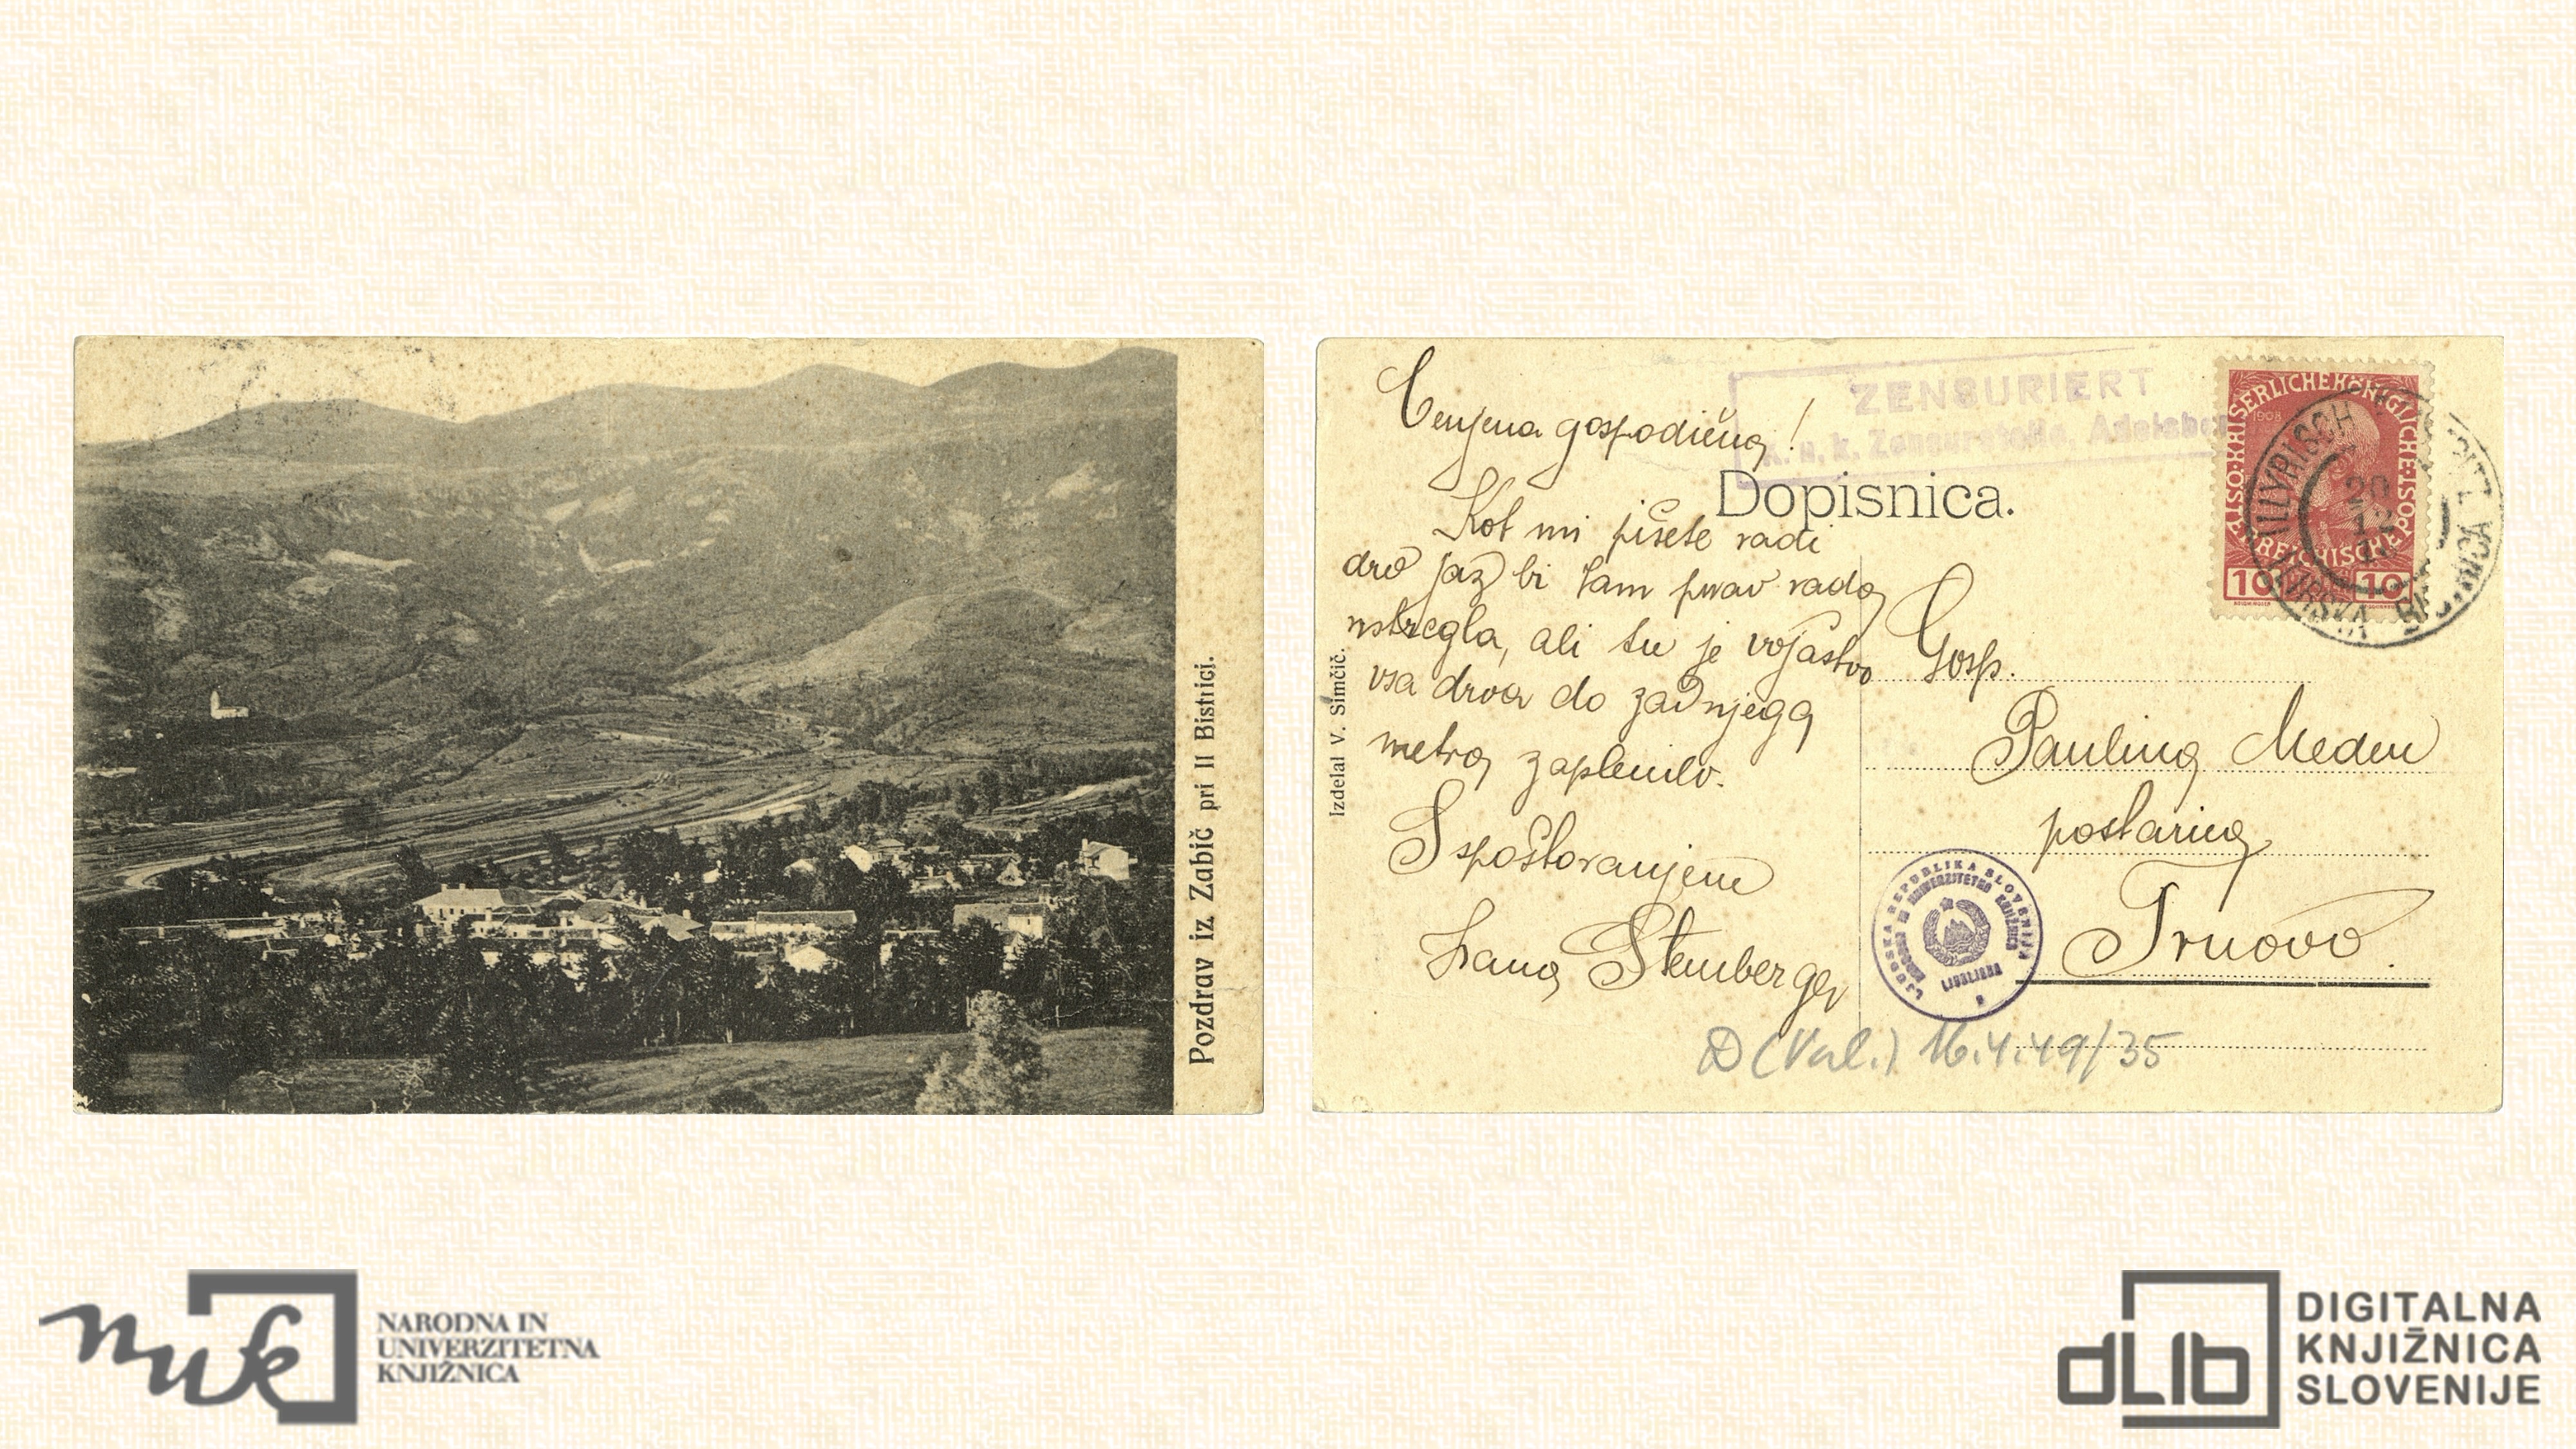 Pozdrav iz Zabič pri Il Bistrici.
Cenjena gospodična!
ZENSURIERT
k. u. k. Zensurstelle, Adelsberg
Dopisnica.
Kot mi pišete radi
drv jaz bi Vam prav rada
ustregla, ali tu je vojaštvo
vsa drva do zadnjega
metra zaplenilo.
S spoštovanjem
Ivana Štemberger
Izdelal V. Simčič.
KAISERLICHE KÖNIGLICHE
ÖSTERREICHISCHE POST
1908
10 10
ILLYRISCH
20
12
BISTRICA
Gosp.
Paulina Meden
poštarica
Trnovo.
LJUDSKA REPUBLIKA SLOVENIJA
NARODNA IN UNIVERZITETNA KNJIŽNICA
LJUBLJANA
D (Val.) 16.4.49/35
nuk
NARODNA IN
UNIVERZITETNA
KNJIŽNICA
dLib
DIGITALNA
KNJIŽNICA
SLOVENIJE